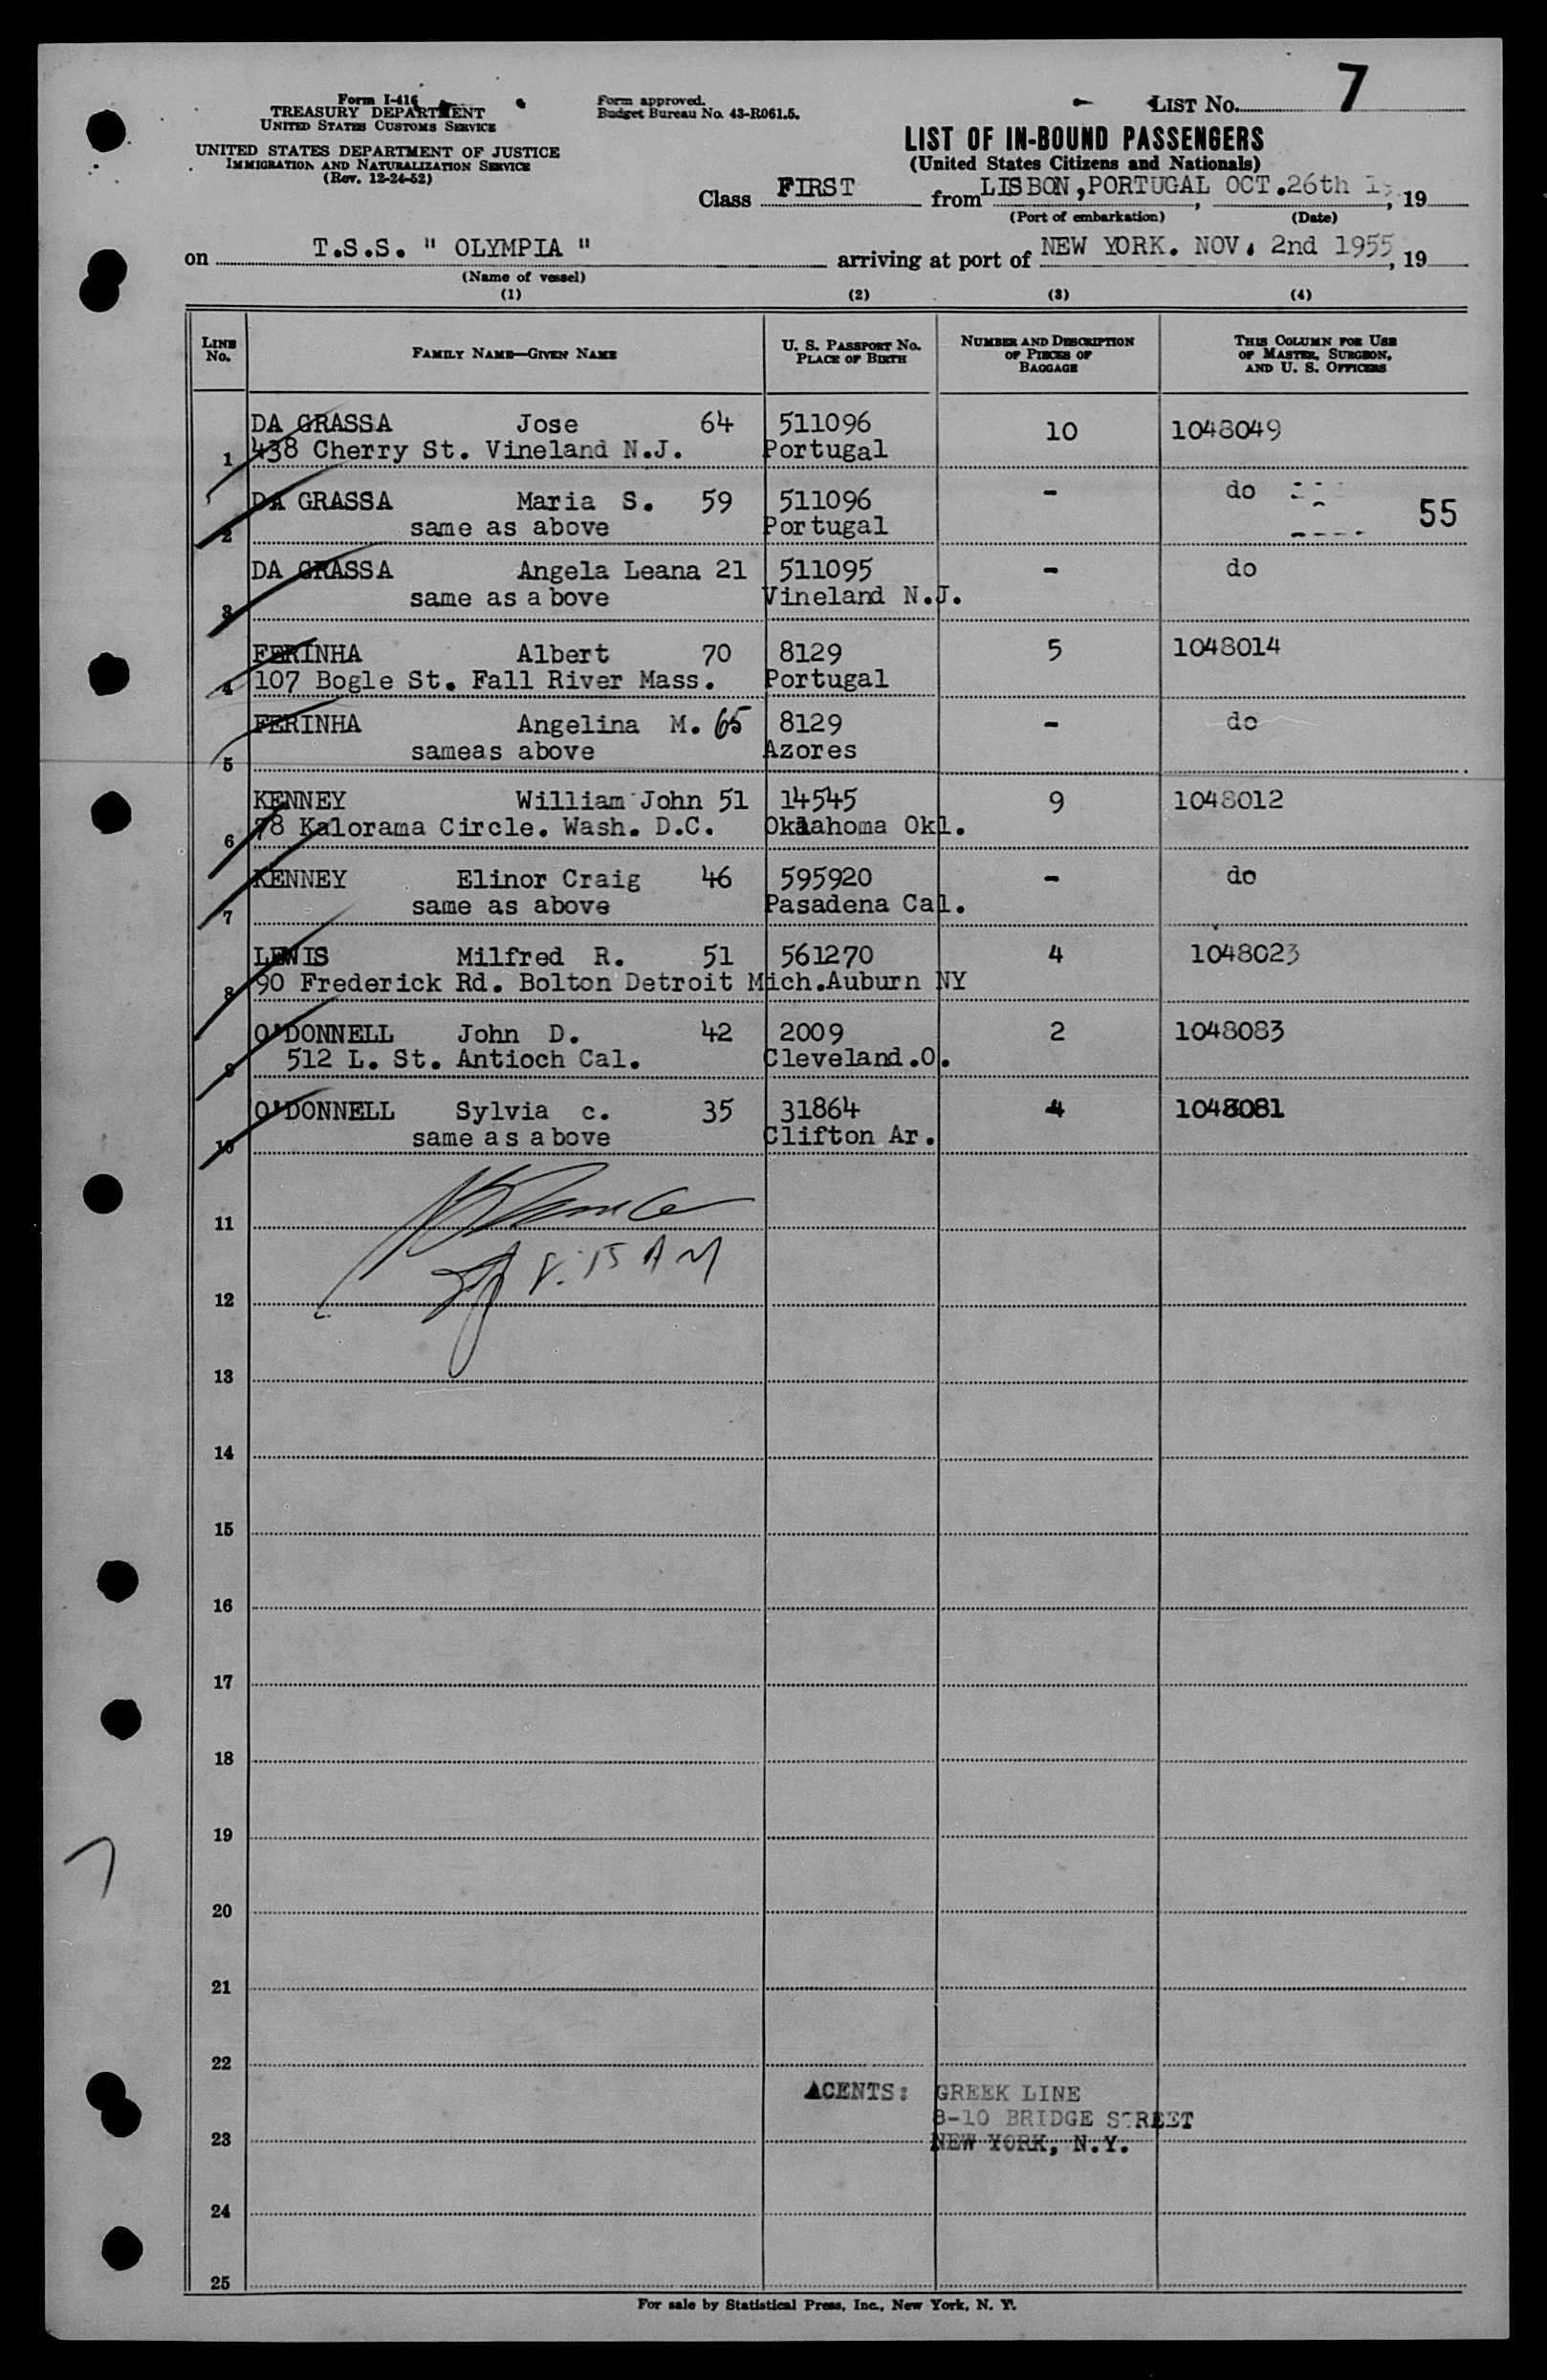 Form I-416
TREASURY DEPARTMENT
UNITED STATES CUSTOMS SERVICE
UNITED STATES DEPARTMENT OF JUSTICE
IMMIGRATION AND NATURALIZATION SERVICE
(Rev. 12-24-52)
Form approved.
Budget Bureau No. 43-R061.5.
LIST No. 7
LIST OF IN-BOUND PASSENGERS
(United States Citizens and Nationals)
Class FIRST from LISBON,PORTUGAL, OCT.26th, 19
(Port of embarkation) (Date)
on T.S.S. " OLYMPIA " arriving at port of NEW YORK. NOV. 2nd 1955, 19
(Name of vessel)
(1) (2) (3) (4)
LINE No. FAMILY NAME—GIVEN NAME U. S. PASSPORT No. PLACE OF BIRTH NUMBER AND DESCRIPTION OF PIECES OF BAGGAGE THIS COLUMN FOR USE OF MASTER, SURGEON, AND U. S. OFFICERS
DA GRASSA Jose 64 511096 10 1048049
1 438 Cherry St. Vineland N.J. Portugal
DA GRASSA Maria S. 59 511096 - do 55
2 same as above Portugal
DA GRASSA Angela Leana 21 511095 - do
3 same as a bove Vineland N.J.
FERINHA Albert 70 8129 5 1048014
4 107 Bogle St. Fall River Mass. Portugal
FERINHA Angelina M. 65 8129 - do
5 sameas above Azores
KENNEY William John 51 14545 9 1048012
6 78 Kalorama Circle. Wash. D.C. Oklahoma Okl.
KENNEY Elinor Craig 46 595920 - do
7 same as above Pasadena Cal.
LEWIS Milfred R. 51 561270 4 1048023
8 90 Frederick Rd. Bolton Detroit Mich.Auburn NY
O'DONNELL John D. 42 2009 2 1048083
9 512 L. St. Antioch Cal. Cleveland.O.
O'DONNELL Sylvia c. 35 31864 4 1048081
10 same a s a bove Clifton Ar.
11
8:15 AM
12
13
14
15
16
17
18
19
20
21
22
AGENTS: GREEK LINE
8-10 BRIDGE STREET
23 NEW YORK, N.Y.
24
25
For sale by Statistical Press, Inc., New York, N. Y.